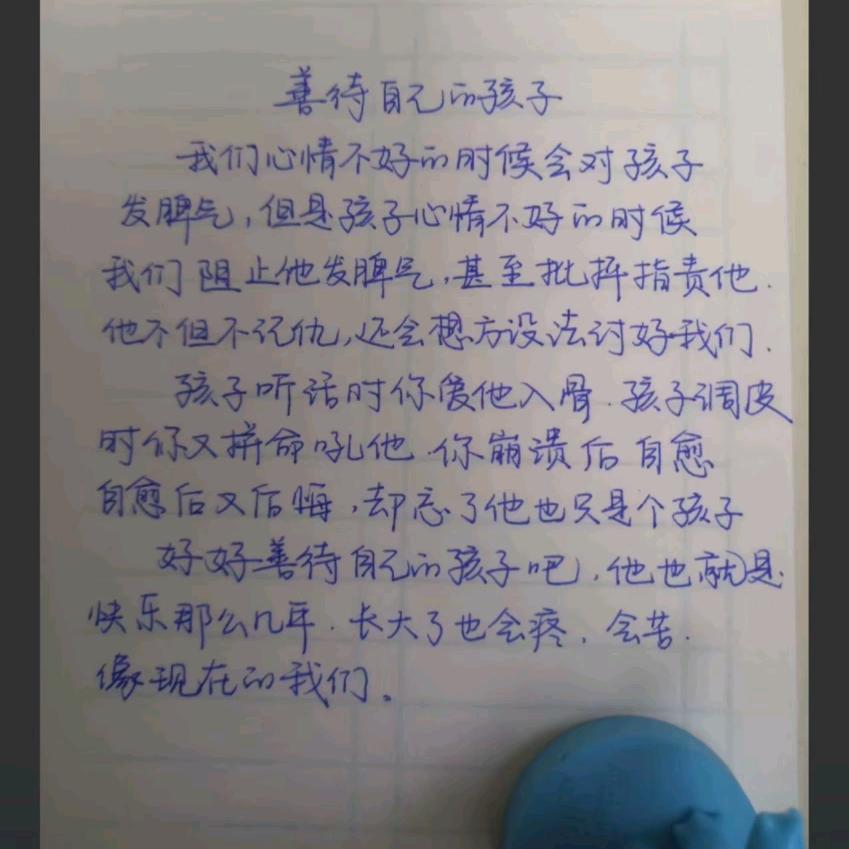 善待自己的孩子
我们心情不好的时候会对孩子
发脾气,但是孩子心情不好的时候
我们阻止他发脾气,甚至批抨指责他.
他不但不记仇,还会想方设法讨好我们.
孩子听话时你爱他入骨.孩子调皮
时你又拼命吼他.你崩溃后自愈
自愈后又后悔,却忘了他也只是个孩子
好好善待自己的孩子吧,他也就是
快乐那么几年.长大了也会疼.会苦.
像现在的我们。